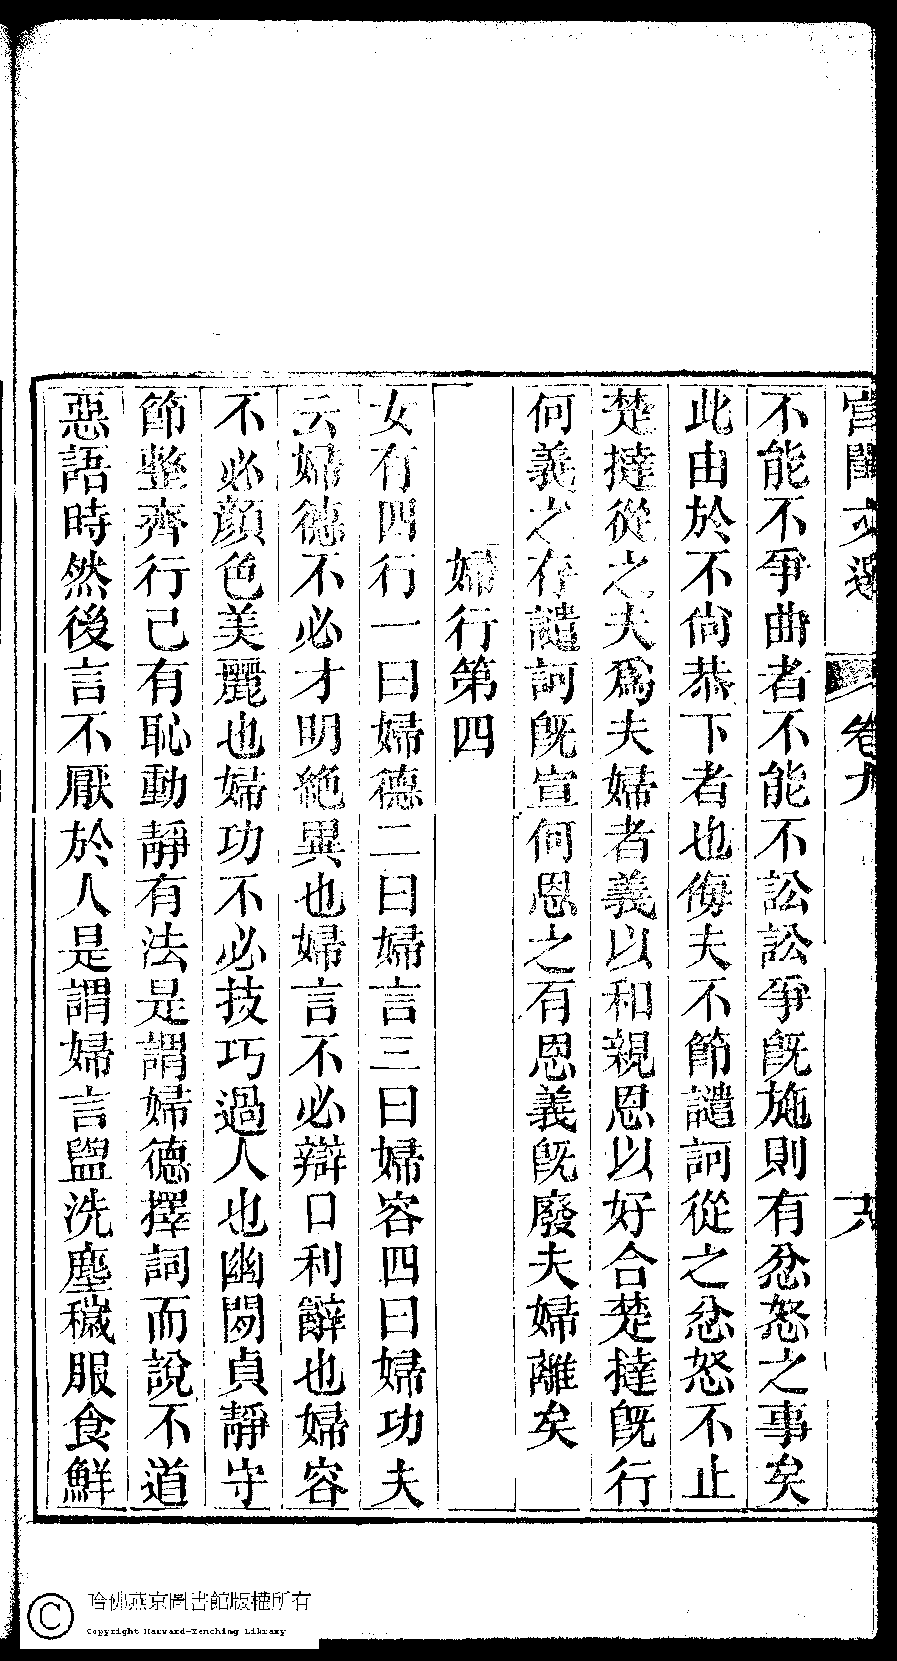 宮閨文選 卷九 十八
不能不爭曲者不能不訟訟爭旣施則有忿怒之事矣
此由於不尙恭下者也侮夫不節譴訶從之忿怒不止
楚撻從之夫爲夫婦者義以和親恩以好合楚撻旣行
何義之存譴訶旣宣何恩之有恩義旣廢夫婦離矣
婦行第四
女有四行一曰婦德二曰婦言三曰婦容四曰婦功夫
云婦德不必才明絶異也婦言不必辯口利辭也婦容
不必顏色美麗也婦功不必技巧過人也幽閒貞靜守
節整齊行己有恥動靜有法是謂婦德擇詞而說不道
惡語時然後言不厭於人是謂婦言盥洗塵穢服食鮮
哈佛燕京圖書館版權所有
Copyright Harvard-Yenching Library